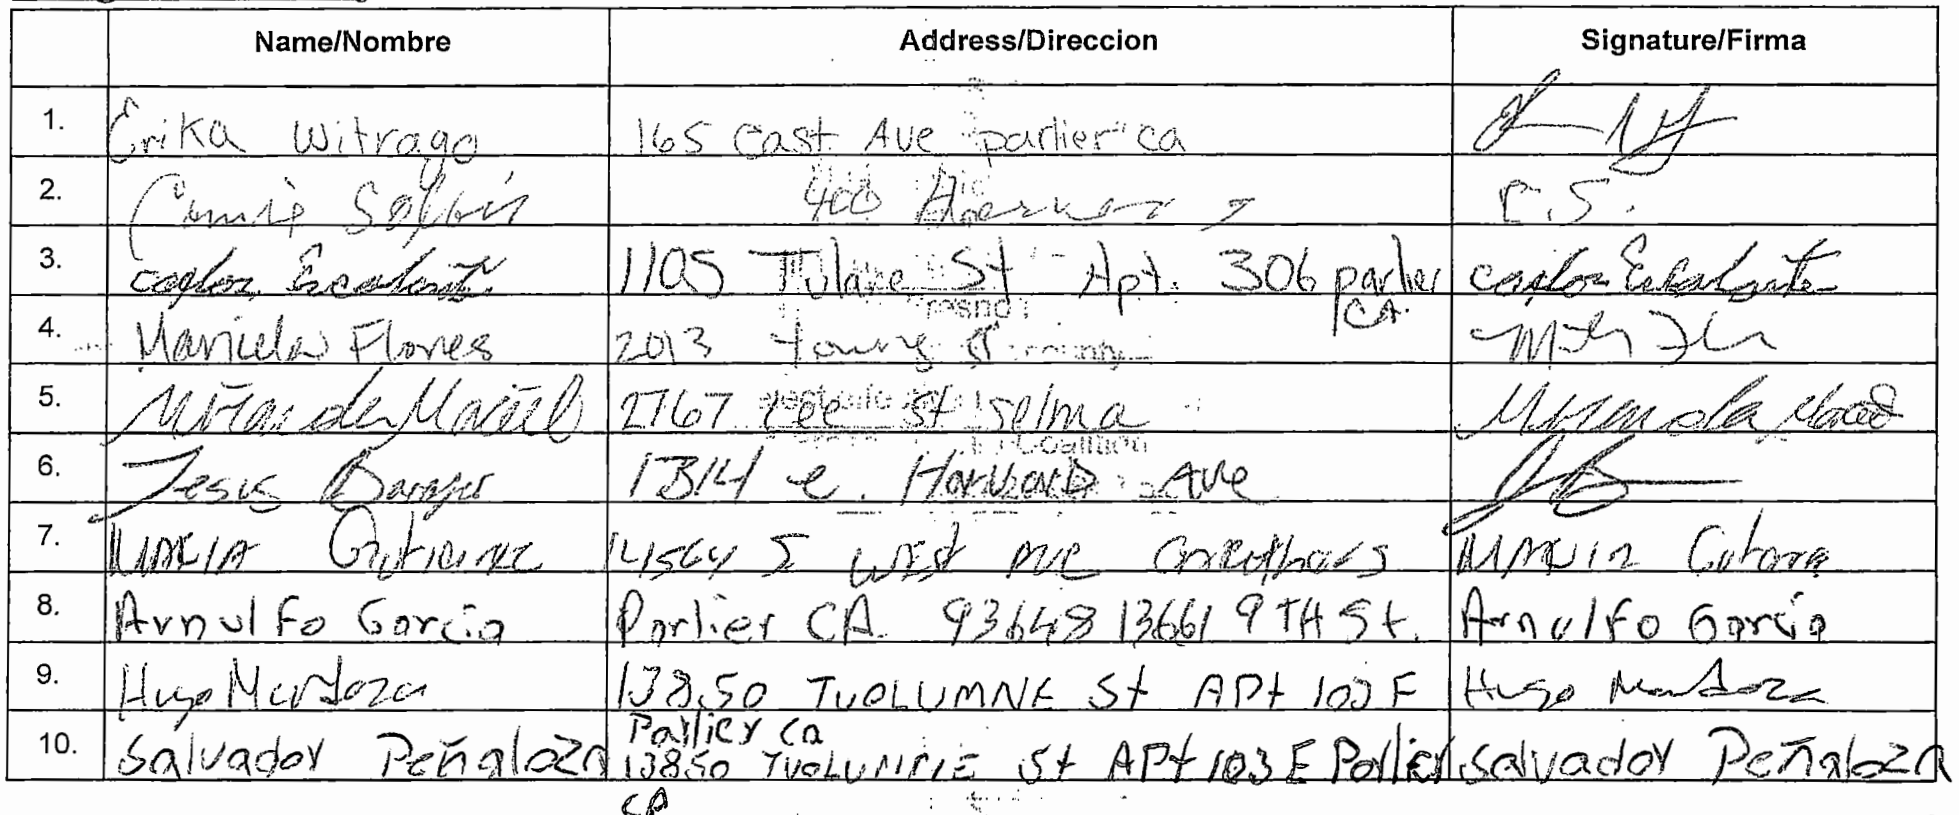 Name/Nombre Address/Direccion Signature/Firma
1. Erika Witrago 165 East Ave parlier ca
2. Connie 400 C.S.
3. Carlos Escalante 1105 Tulare St Apt. 306 parlier Carlos Escalante
CA.
4. Mariela Flores 2013 Young St
5. Miranda Maciel 2767 Lee St Selma Miranda
6. Jesus Barajas 1314 e. Harvard Ave
7. MARIA 14564 S WEST AVE MARIA
8. Arnulfo Garcia Parlier CA. 93648 13661 9TH St. Arnulfo Garcia
9. Hugo Mendoza 13850 TUOLUMNE St APt 103 F Hugo Mendoza
Parlier ca
10. Salvador Peñaloza 13850 TUOLUMNE St APt 103 E Parlier Salvador Peñaloza
CA